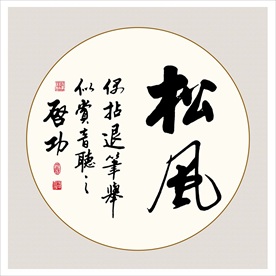 松風
偶拈退筆舉
似賞音聽之
啓功